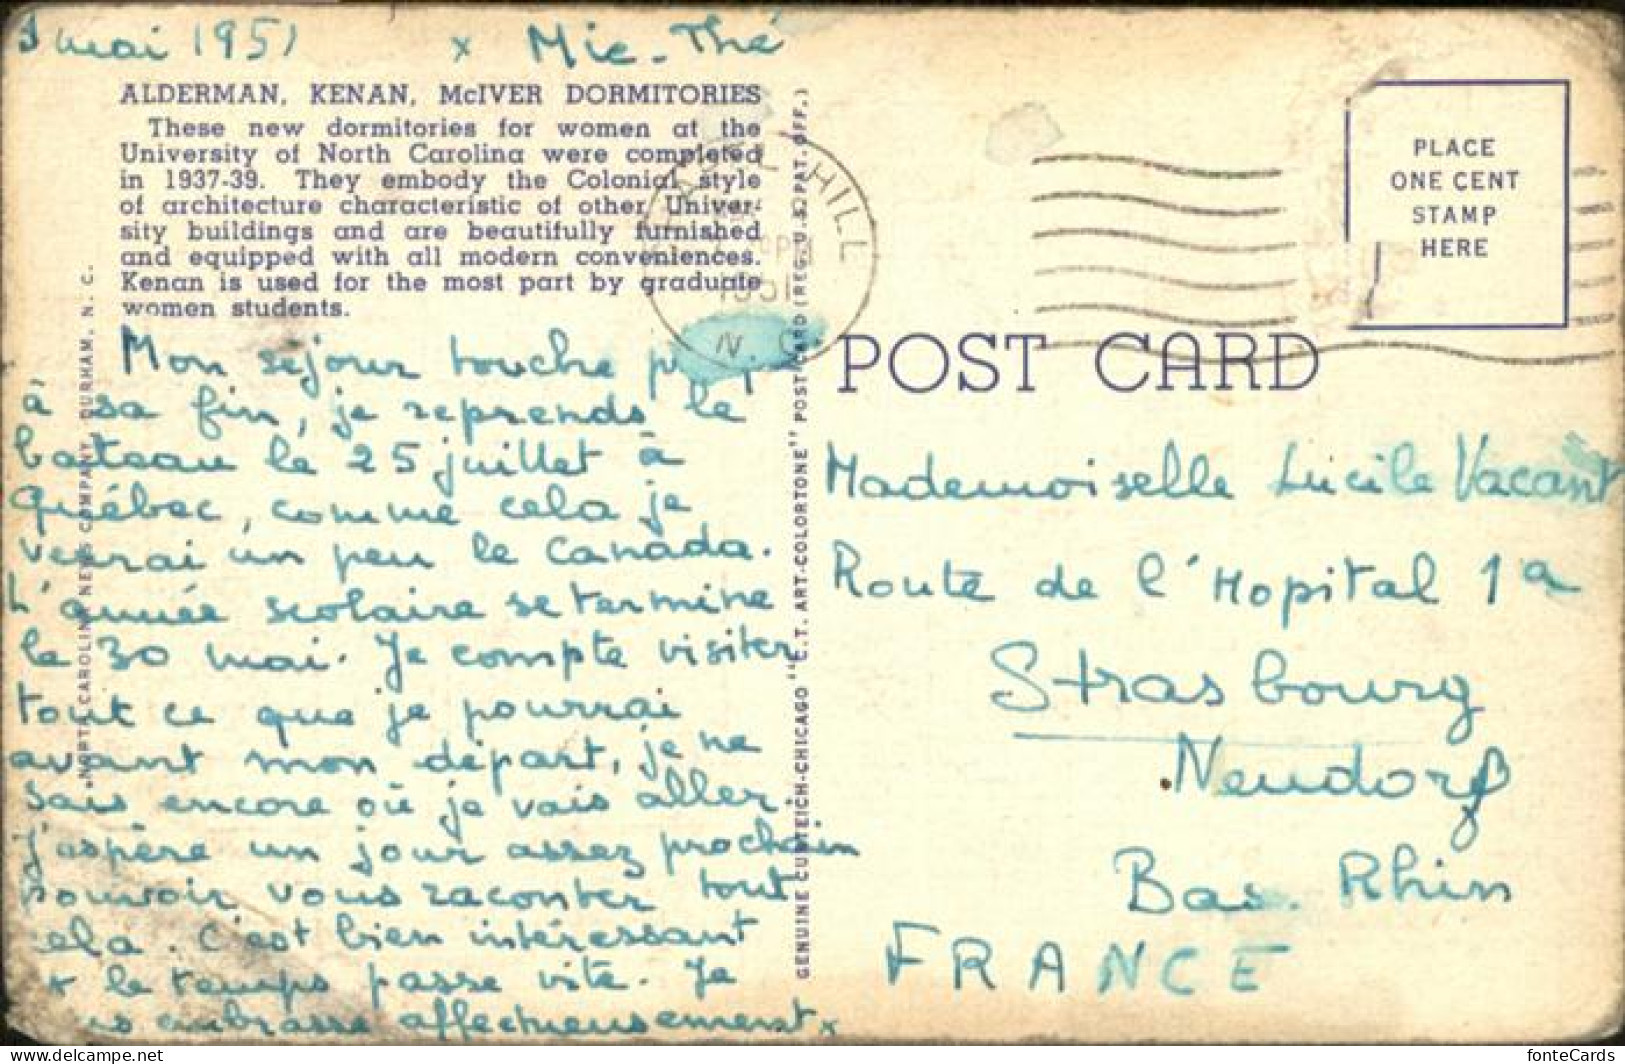 3 mai 1951 x Mic-Thé
ALDERMAN, KENAN, McIVER DORMITORIES
These new dormitories for women at the
University of North Carolina were completed
in 1937-39. They embody the Colonial style
of architecture characteristic of other Univer-
sity buildings and are beautifully furnished
and equipped with all modern conveniences.
Kenan is used for the most part by graduate
women students.
Mon séjour touche
à sa fin, je reprends le
bateau le 25 juillet à
Québec, comme cela je
verrai un peu le Canada.
L'année scolaire se termine
le 30 mai. Je compte visiter
tout ce que je pourrai
avant mon départ, je ne
sais encore où je vais aller.
J'espère un jour assez prochain
pouvoir vous raconter tout
cela. C'est bien intéressant
x le temps passe vite. Je
vous embrasse affectueusement x
NORTH CAROLINA NEWS COMPANY, DURHAM, N. C.
GENUINE CURTEICH-CHICAGO "C.T. ART-COLORTONE" POST CARD (REG. U.S. PAT. OFF.)
CHAPEL HILL
PM
1951
N C
PLACE
ONE CENT
STAMP
HERE
POST CARD
Mademoiselle Lucile Vacant
Route de l'Hopital 1a
Strasbourg
Neudorf
Bas-Rhin
FRANCE
www.delcampe.net
fonteCards